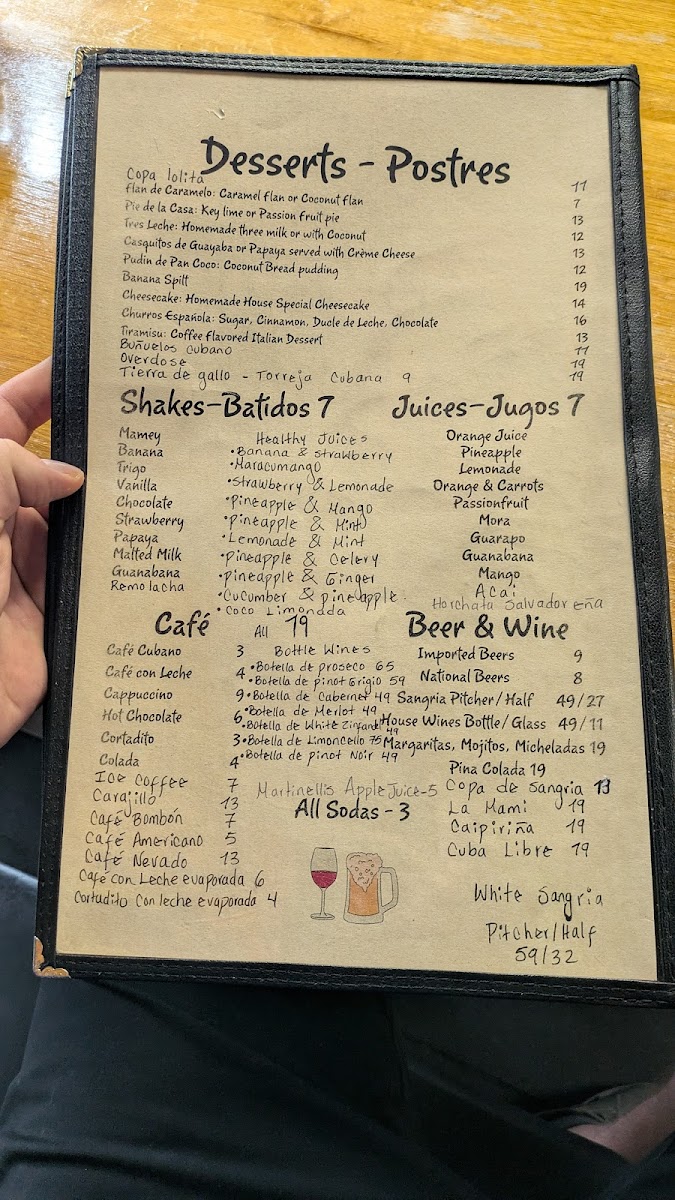 Desserts - Postres
Copa lolita 11
Flan de Caramelo: Caramel flan or Coconut flan 7
Pie de la Casa: Key lime or Passion fruit pie 13
Tres Leche: Homemade three milk or with Coconut 12
Casquitos de Guayaba or Papaya served with Crème Cheese 13
Pudin de Pan Coco: Coconut Bread pudding 12
Banana Spilt 19
Cheesecake: Homemade House Special Cheesecake 14
Churros Española: Sugar, Cinnamon, Ducle de Leche, Chocolate 16
Tiramisu: Coffee flavored Italian Dessert 13
Buñuelos cubano 11
Overdose 19
Tierra de gallo - Torreja Cubana 9 19
Shakes-Batidos 7
Mamey
Banana
Trigo
Vanilla
Chocolate
Strawberry
Papaya
Malted Milk
Guanabana
Remolacha
Healthy Juices
•Banana & strawberry
•Maracumango
•Strawberry & Lemonade
•Pineapple & Mango
•pineapple & Mint
•Lemonade & Mint
•pineapple & Celery
•pineapple & Ginger
•Cucumber & pineapple
•Coco Limondda
All 19
Juices-Jugos 7
Orange Juice
Pineapple
Lemonade
Orange & Carrots
Passionfruit
Mora
Guarapo
Guanabana
Mango
Acai
Horchata Salvadoreña
Café
Café Cubano 3
Café con Leche 4
Cappuccino 9
Hot Chocolate 6
Cortadito 3
Colada 4
Ice Coffee 7
Carajillo 13
Café Bombón 7
Café Americano 5
Café Nevado 13
Café con Leche evaporada 6
Cortadito Con leche evaporada 4
Bottle Wines
•Botella de proseco 65
•Botella de pinot Grigio 59
•Botella de Cabernet 49
•Botella de Merlot 49
•Botella de White Zinfandel 49
•Botella de Limoncello 75
•Botella de pinot Noir 49
Martinellis Apple Juice-5
All Sodas - 3
Beer & Wine
Imported Beers 9
National Beers 8
Sangria Pitcher/Half 49/27
House Wines Bottle/Glass 49/11
Margaritas, Mojitos, Micheladas 19
Pina Colada 19
Copa de sangria 13
La Mami 19
Caipiriña 19
Cuba Libre 19
White Sangria
Pitcher/Half
59/32